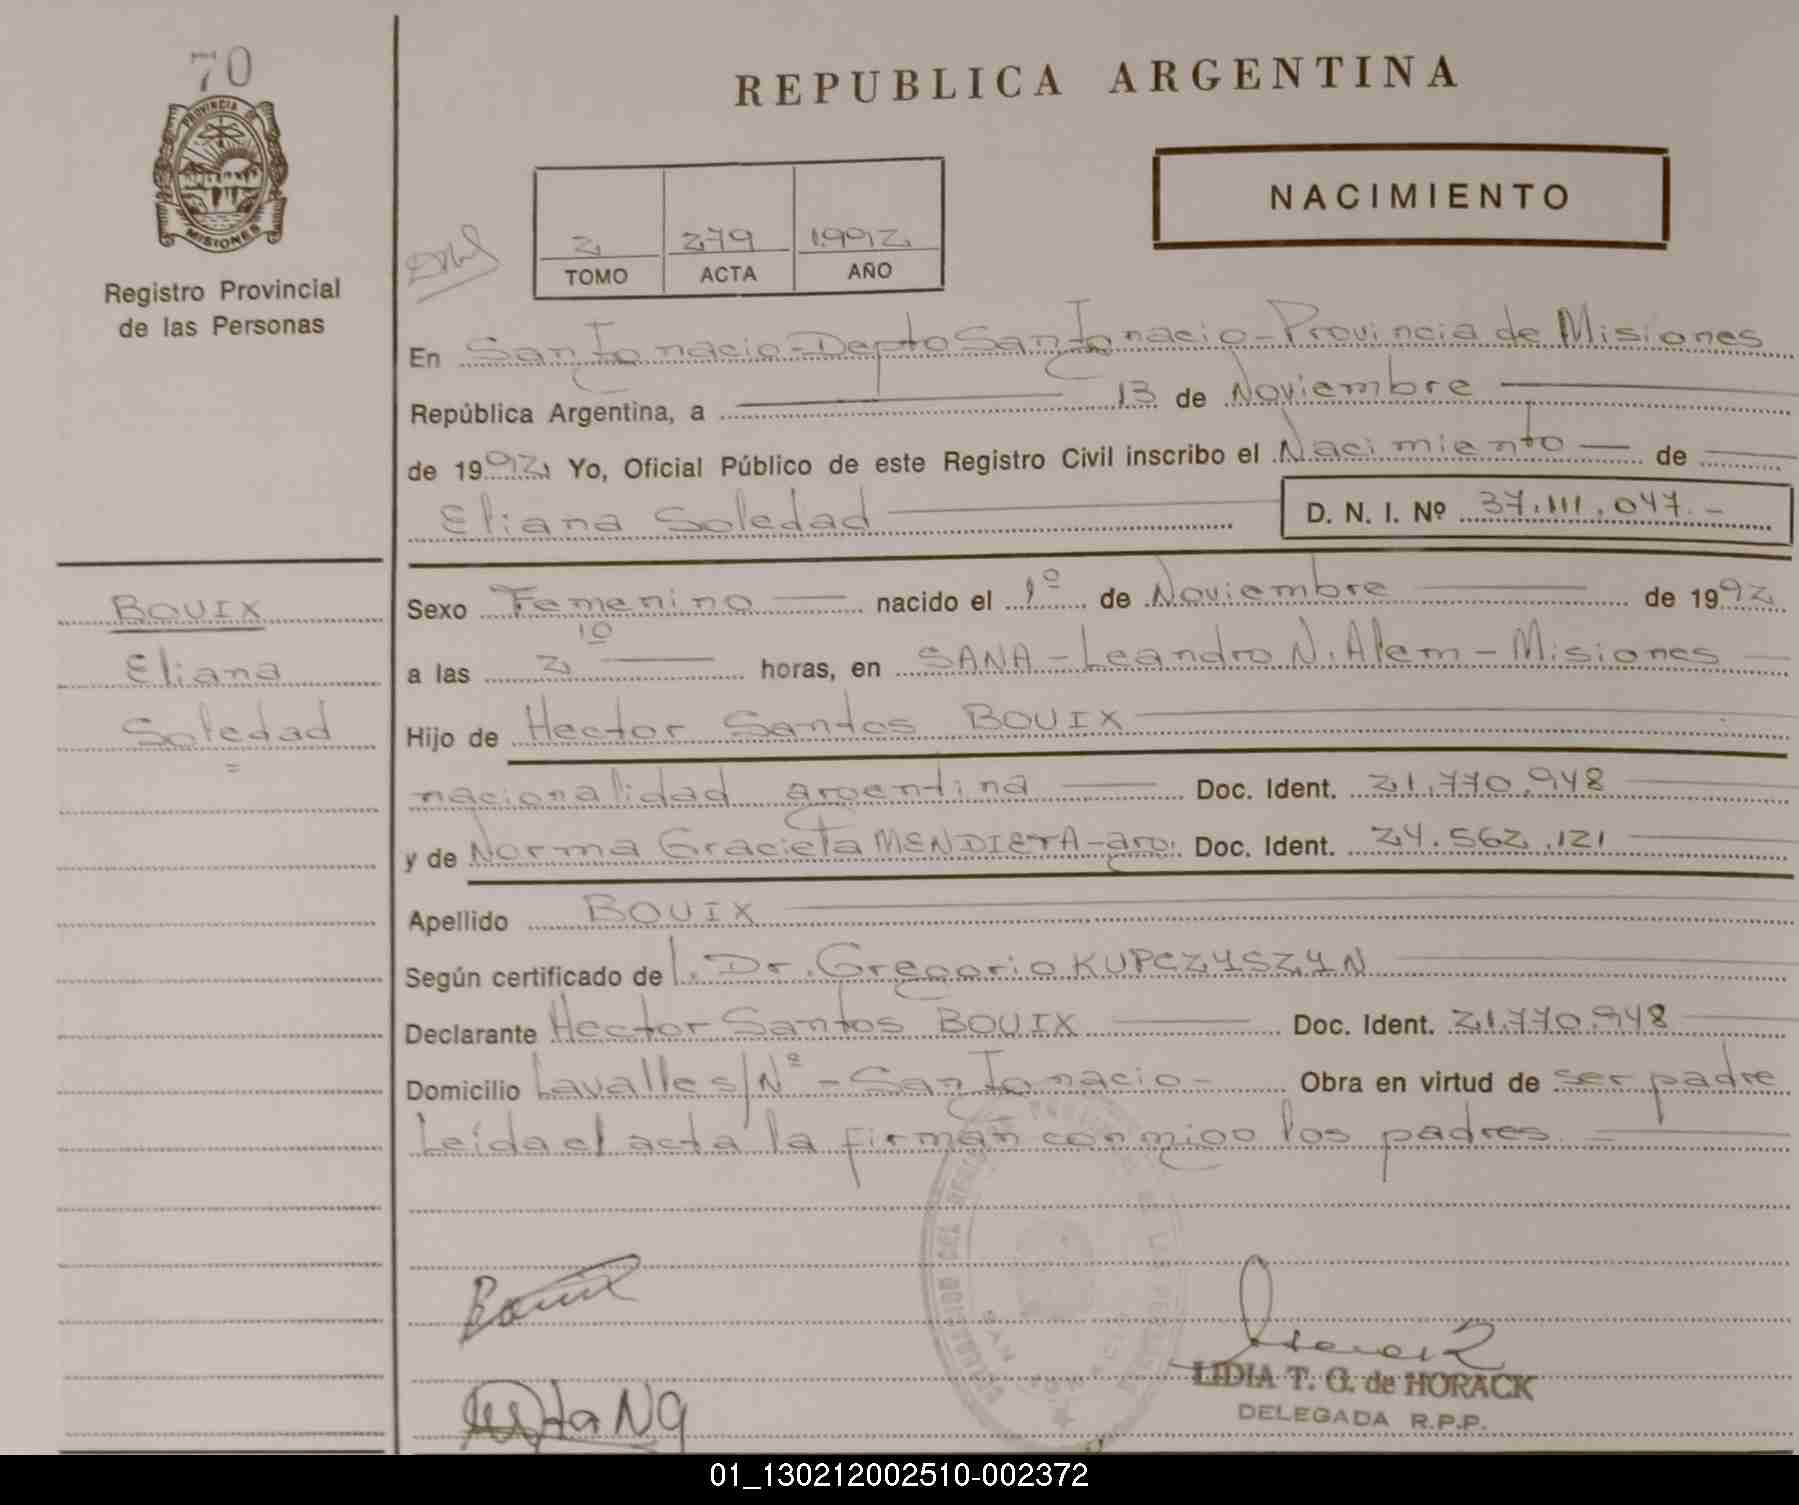 70
PROVINCIA DE
MISIONES
Registro Provincial
de las Personas
REPUBLICA ARGENTINA
NACIMIENTO
2 279 1992
TOMO ACTA AÑO
En San Ignacio - Depto San Ignacio - Provincia de Misiones
República Argentina, a 13 de Noviembre
de 1992 Yo, Oficial Público de este Registro Civil inscribo el Nacimiento de
Eliana Soledad D. N. I. Nº 37.111.047.-
BOUIX
Eliana
Soledad
Sexo Femenino nacido el 1º de Noviembre de 1992
a las 2 10 horas, en SANA - Leandro N. Alem - Misiones
Hijo de Hector Santos BOUIX
nacionalidad argentina Doc. Ident. 21.770.948
y de Norma Graciela MENDIETA - arg. Doc. Ident. 24.562.121
Apellido BOUIX
Según certificado de l. Dr. Gregorio KUPCZYSZYN
Declarante Hector Santos BOUIX Doc. Ident. 21.770.948
Domicilio Lavalle s/Nº - San Ignacio - Obra en virtud de ser padre
Leída el acta la firman conmigo los padres.
LIDIA T. G. de HORACK
DELEGADA R.P.P.
01_130212002510-002372